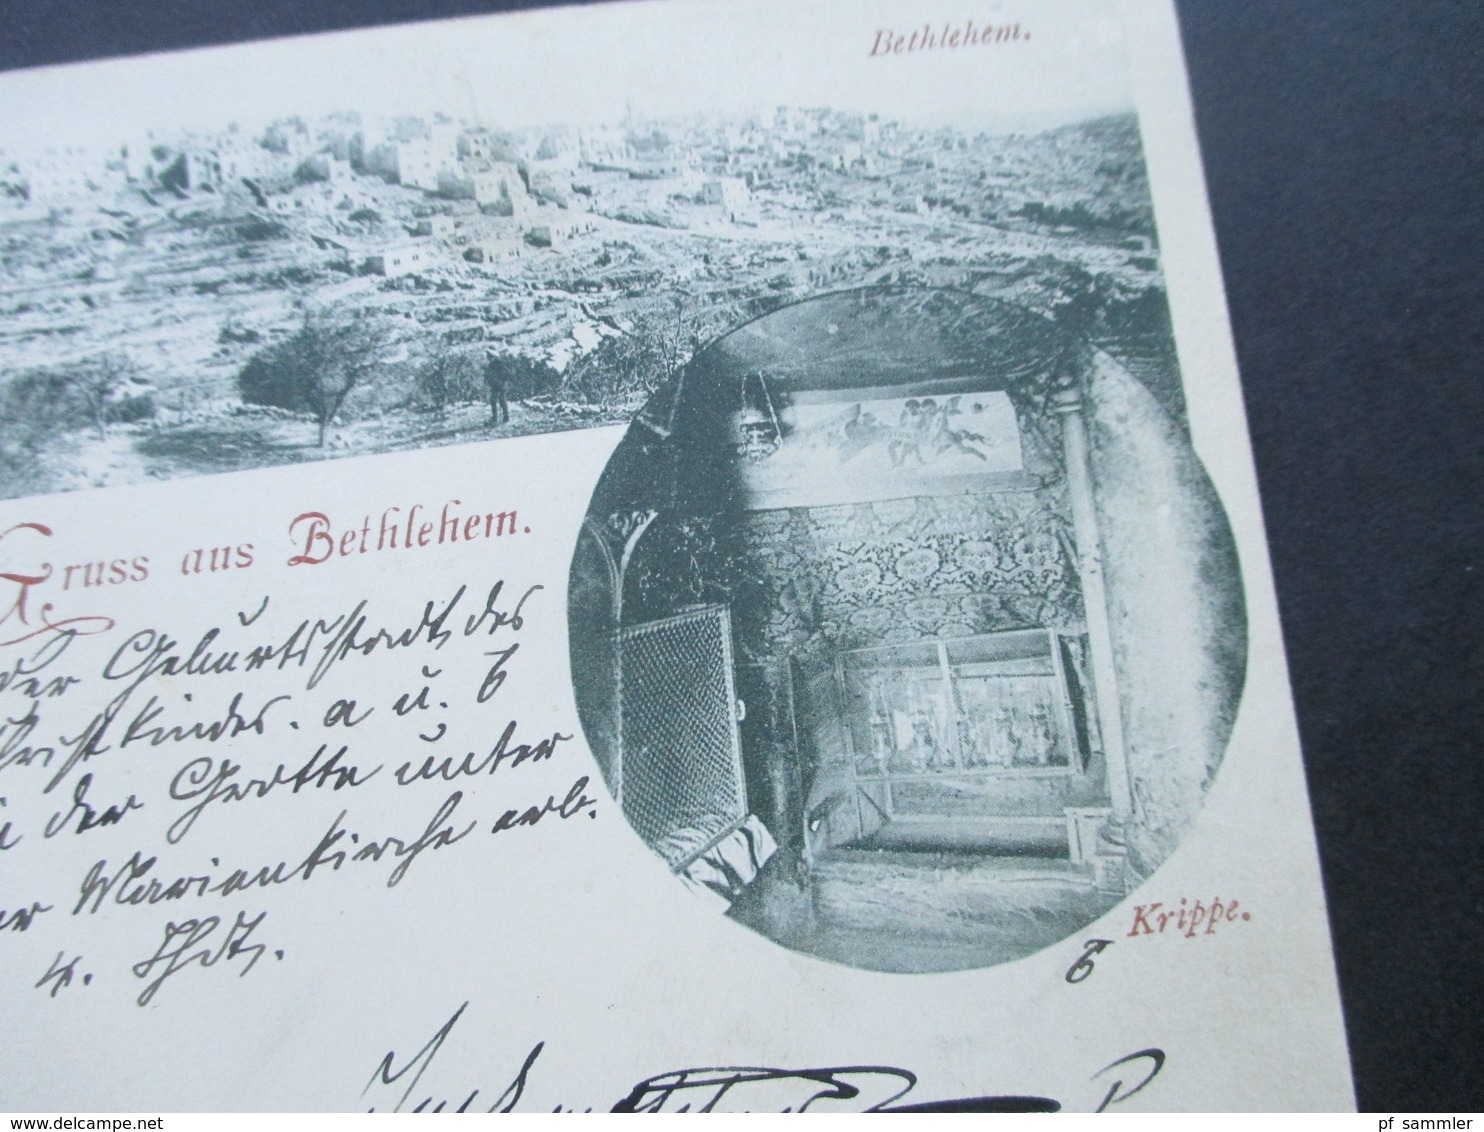 Bethlehem.
Gruss aus Bethlehem.
der Geburtsstadt des
Christkindes. a u. b
in der Grotte unter
der Marienkirche erb.
4. Jhdt.
Krippe.
b
www.delcampe.net
pf_sammler